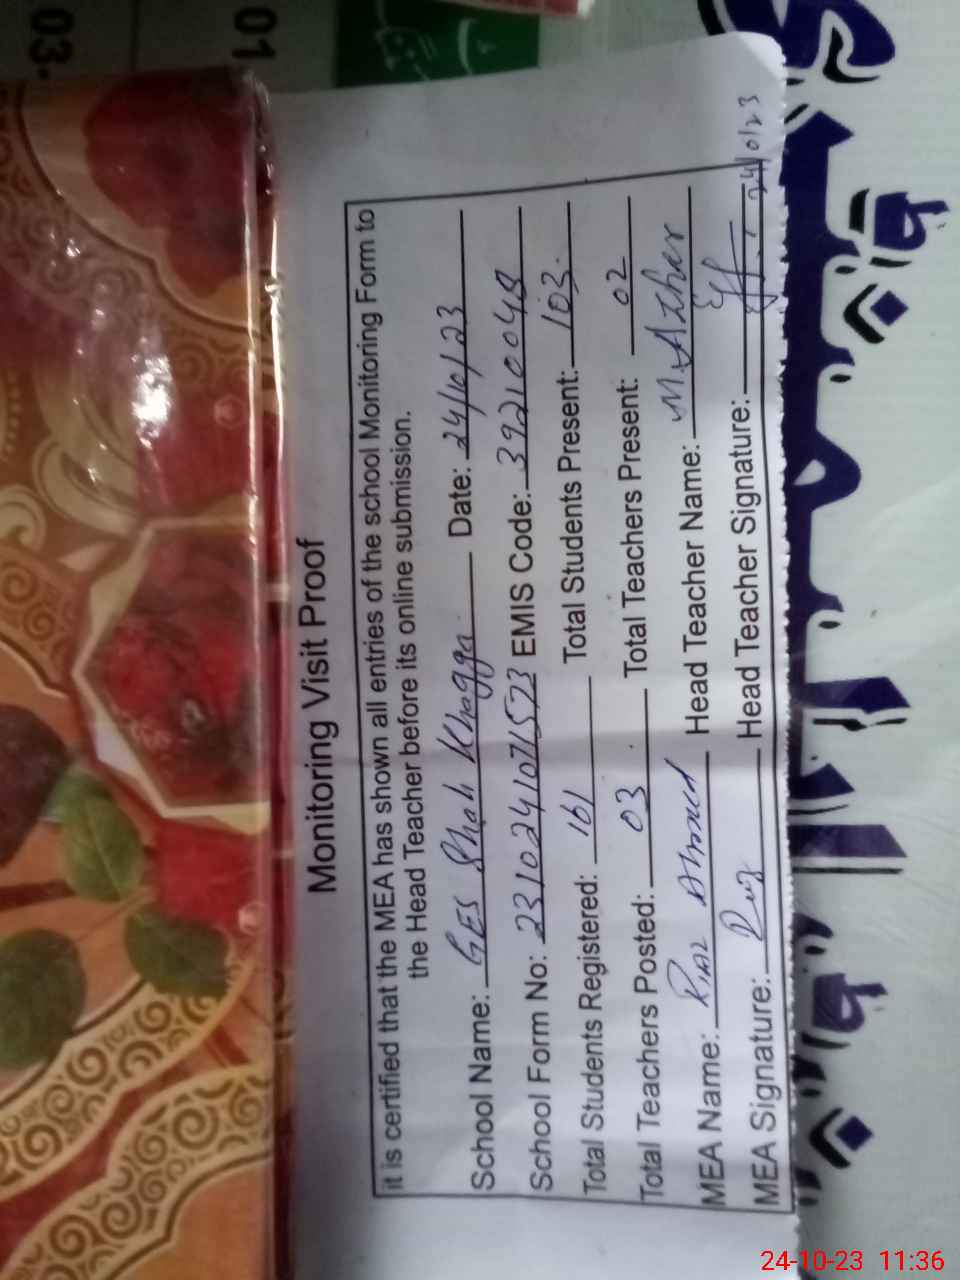 Monitoring Visit Proof
it is certified that the MEA has shown all entries of the school Monitoring Form to
the Head Teacher before its online submission.
School Name: GES Shah Khagga Date: 24/10/23
School Form No: 2310241071573 EMIS Code: 39210048
Total Students Registered: 161 Total Students Present: 103.
Total Teachers Posted: 03 Total Teachers Present: 02
MEA Name: Riaz Ahmed Head Teacher Name: M. Azhar
MEA Signature: Riaz Head Teacher Signature:
03.
01
24-10-23 11:36